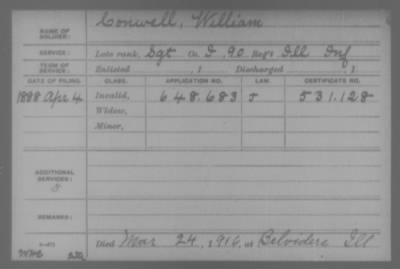 NAME OF SOLDIER: Conwell, William
SERVICE: Late rank, Sgt Co. I, 90 Reg't Ill Inf
TERM OF SERVICE: Enlisted , 1 Discharged , 1
DATE OF FILING. CLASS. APPLICATION NO. LAW. CERTIFICATE NO.
1888 Apr 4 Invalid, 648.683 531.128
Widow,
Minor,
ADDITIONAL SERVICES:
REMARKS:
Died Mar 24, 1916, at Belvidere Ill